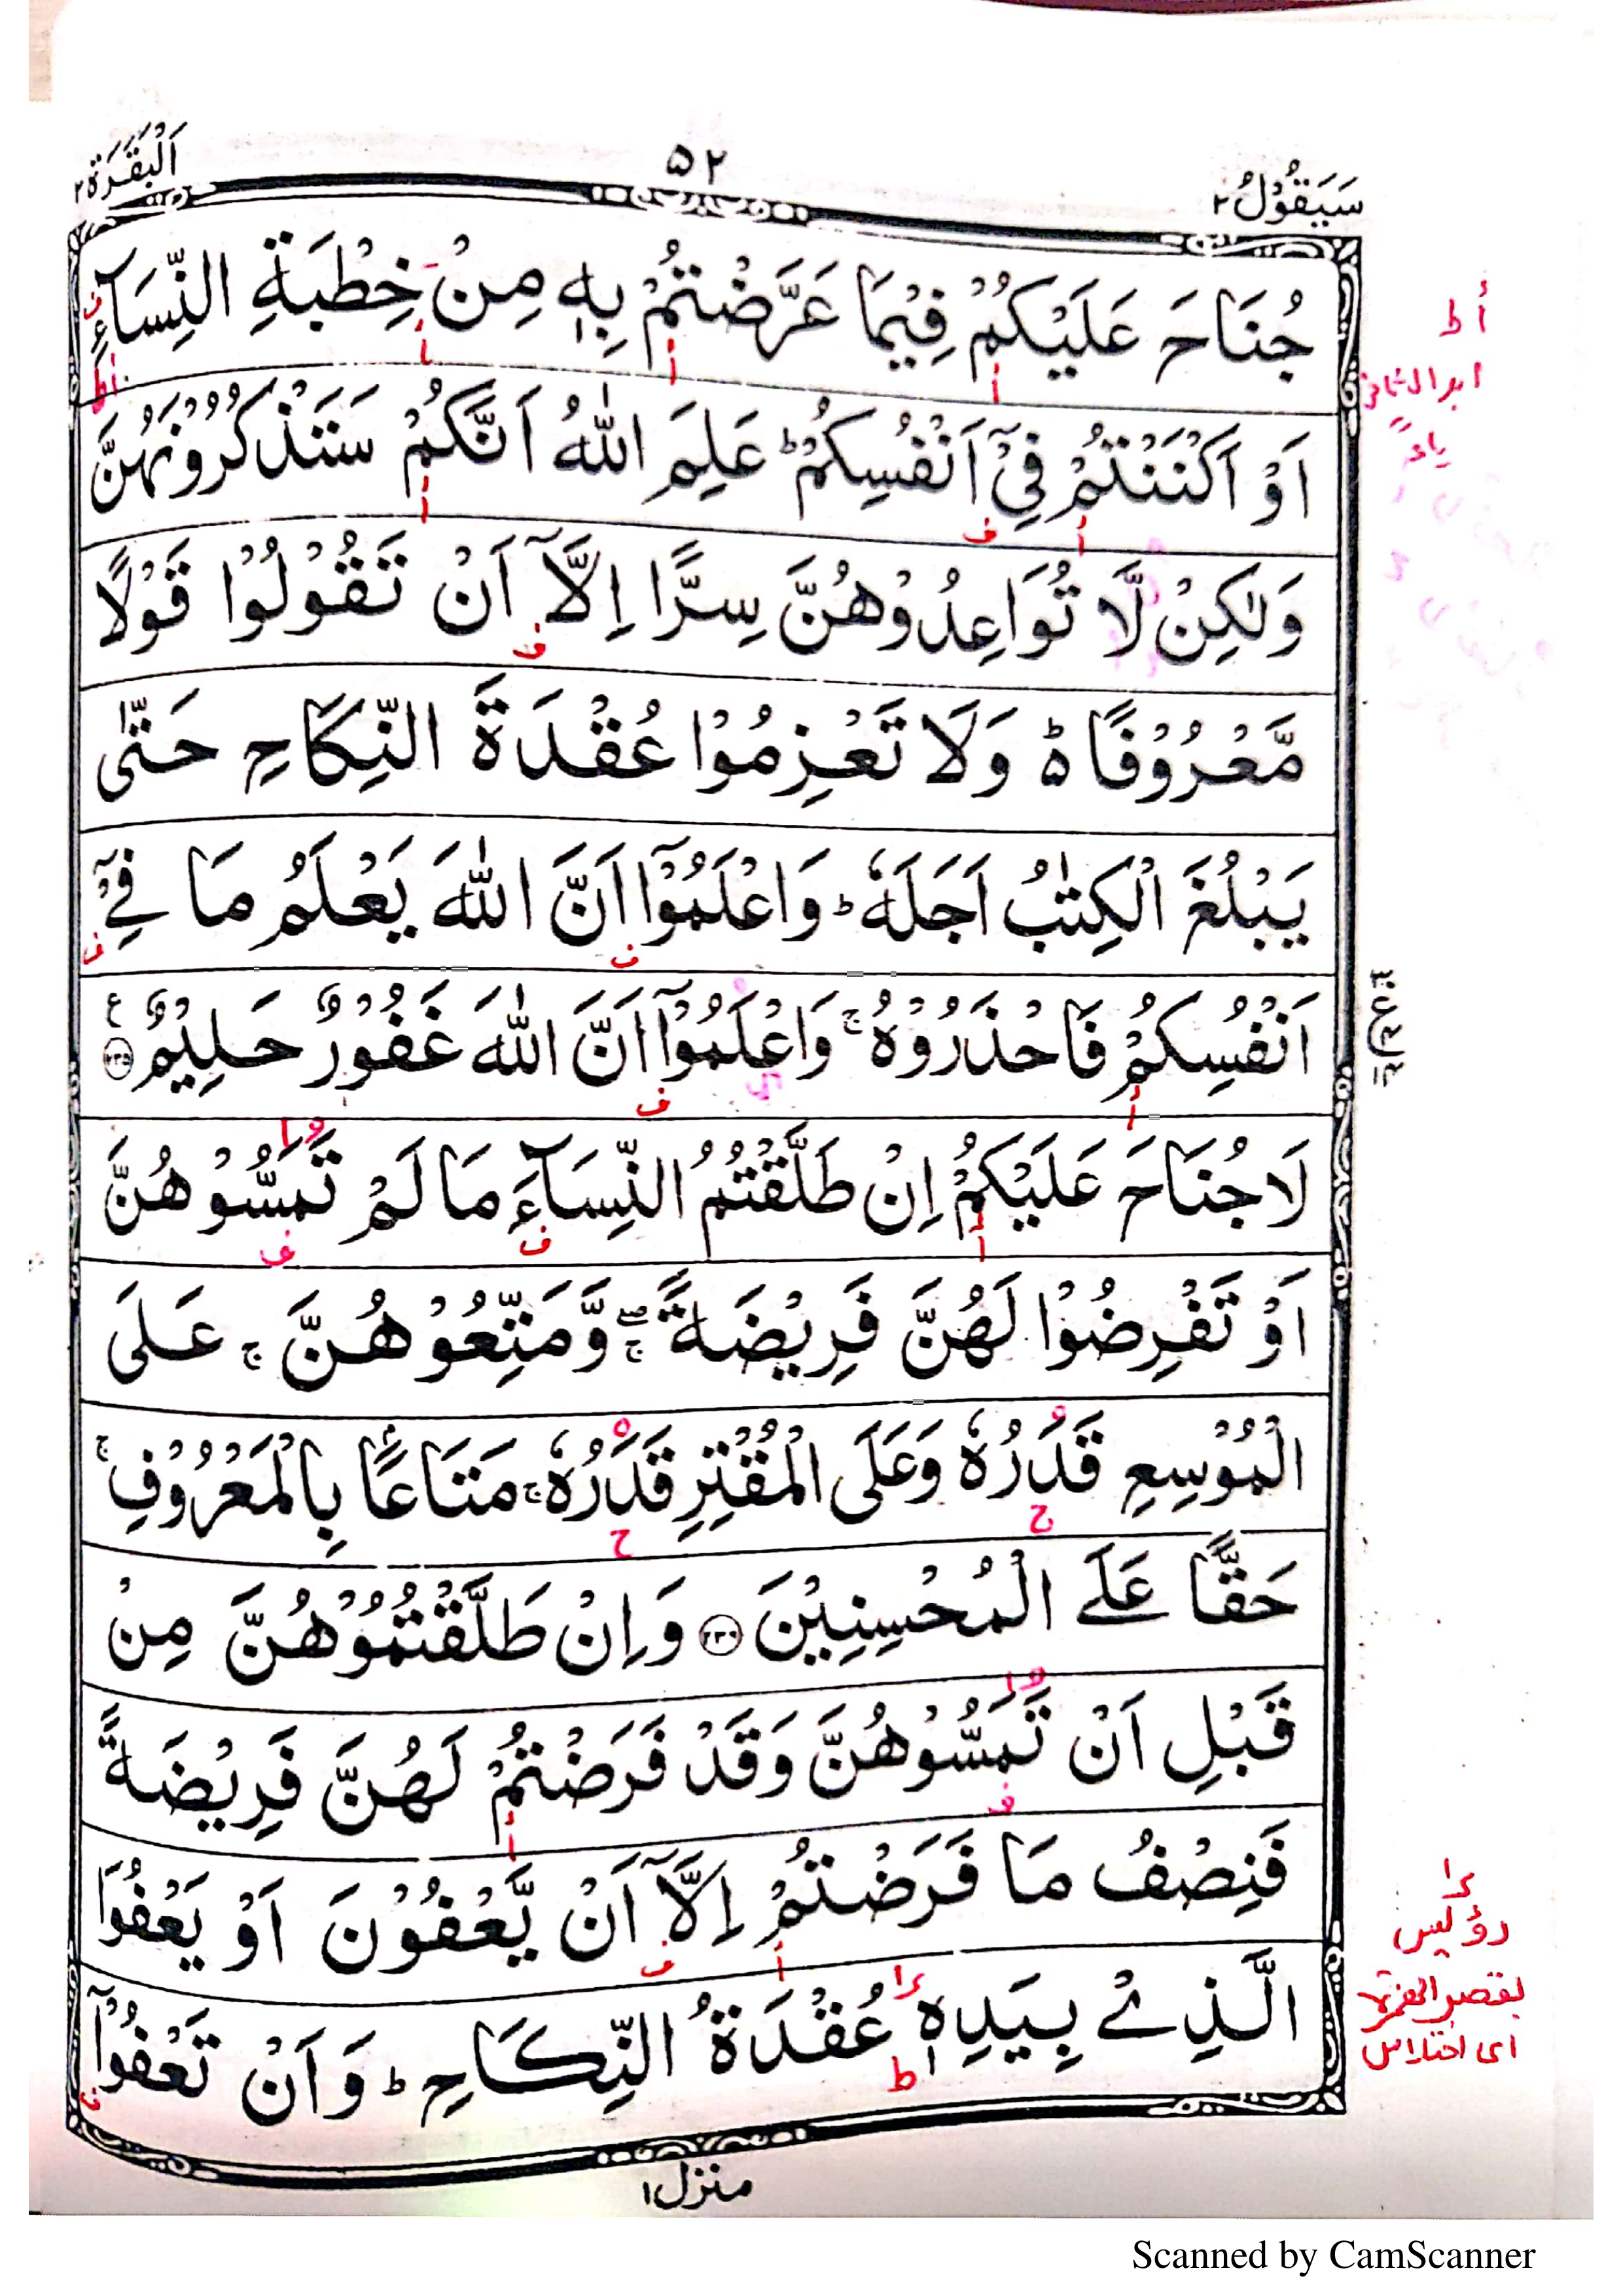 سَيَقُوْلُ ٢
٥٢
اَلْبَقَرَة ٢
جُنَاحَ عَلَيْكُمْ فِيْمَا عَرَّضْتُمْ بِهٖ مِنْ خِطْبَةِ النِّسَآءِ
اَوْ اَكْنَنْتُمْ فِيْٓ اَنْفُسِكُمْ ؕ عَلِمَ اللّٰهُ اَنَّكُمْ سَتَذْكُرُوْنَهُنَّ
وَلٰكِنْ لَّا تُوَاعِدُوْهُنَّ سِرًّا اِلَّآ اَنْ تَقُوْلُوْا قَوْلًا
مَّعْرُوْفًا ؕ۬ وَلَا تَعْزِمُوْا عُقْدَةَ النِّكَاحِ حَتّٰى
يَبْلُغَ الْكِتٰبُ اَجَلَهٗ ؕ وَاعْلَمُوْٓا اَنَّ اللّٰهَ يَعْلَمُ مَا فِيْٓ
اَنْفُسِكُمْ فَاحْذَرُوْهُ ۚ وَاعْلَمُوْٓا اَنَّ اللّٰهَ غَفُوْرٌ حَلِيْمٌ ۝٢٣٥ ع
لَا جُنَاحَ عَلَيْكُمْ اِنْ طَلَّقْتُمُ النِّسَآءَ مَا لَمْ تَمَسُّوْهُنَّ
اَوْ تَفْرِضُوْا لَهُنَّ فَرِيْضَةً ۖۚ وَّمَتِّعُوْهُنَّ ۚ عَلَى
الْمُوْسِعِ قَدَرُهٗ وَعَلَى الْمُقْتِرِ قَدَرُهٗ ۚ مَتَاعًۢا بِالْمَعْرُوْفِ ۚ
حَقًّا عَلَى الْمُحْسِنِيْنَ ۝٢٣٦ وَاِنْ طَلَّقْتُمُوْهُنَّ مِنْ
قَبْلِ اَنْ تَمَسُّوْهُنَّ وَقَدْ فَرَضْتُمْ لَهُنَّ فَرِيْضَةً
فَنِصْفُ مَا فَرَضْتُمْ اِلَّآ اَنْ يَّعْفُوْنَ اَوْ يَعْفُوَا
الَّذِيْ بِيَدِهٖ عُقْدَةُ النِّكَاحِ ؕ وَاَنْ تَعْفُوْٓا
منزل ١
أ ط
ياءً
رؤيس
بقصر الهمزة
اى اختلاس
Scanned by CamScanner